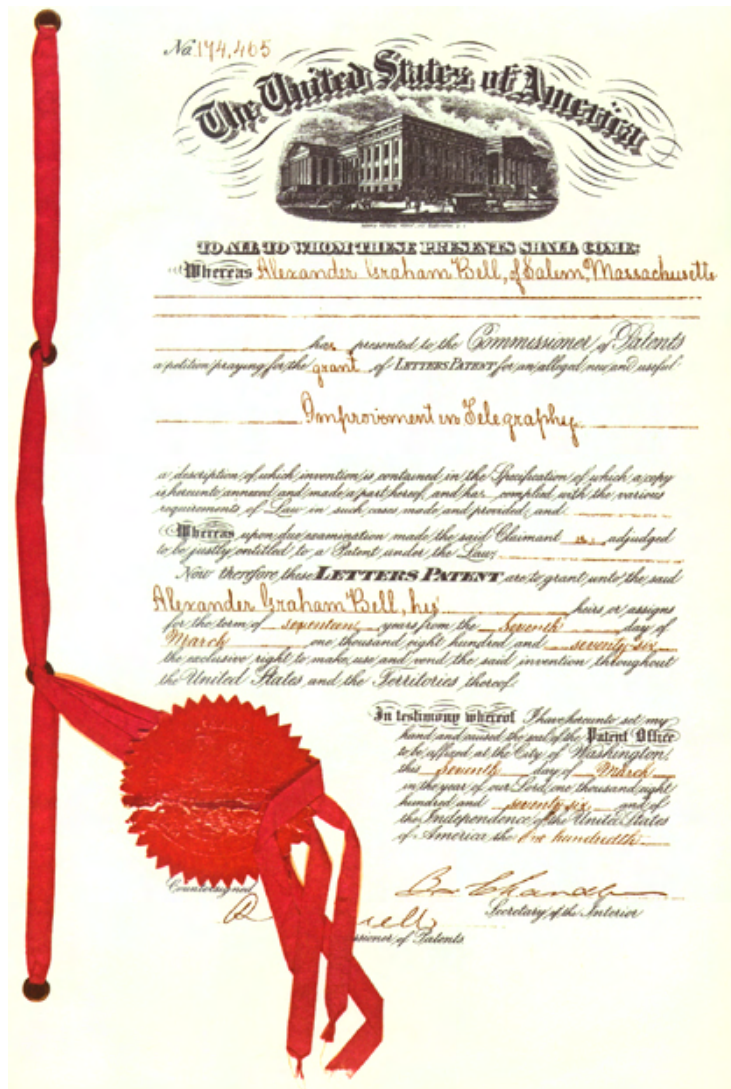 No. 174,465
The United States of America
TO ALL TO WHOM THESE PRESENTS SHALL COME:
Whereas Alexander Graham Bell, of Salem, Massachusetts
has presented to the Commissioner of Patents
a petition praying for the grant of LETTERS PATENT for an alleged new and useful
Improvement in Telegraphy
a description of which invention is contained in the Specification of which a copy
is hereunto annexed and made a part hereof, and has complied with the various
requirements of Law in such cases made and provided, and
Whereas upon due examination made the said Claimant is adjudged
to be justly entitled to a Patent under the Law.
Now therefore these LETTERS PATENT are to grant unto the said
Alexander Graham Bell, his heirs or assigns
for the term of seventeen years from the Seventh day of
March one thousand eight hundred and seventy-six
the exclusive right to make, use and vend the said invention throughout
the United States and the Territories thereof.
In testimony whereof I have hereunto set my
hand and caused the seal of the Patent Office
to be affixed at the City of Washington
this Seventh day of March
in the year of our Lord one thousand eight
hundred and seventy-six and of
the Independence of the United States
of America the one hundredth.
Countersigned
Chandler
Secretary of the Interior
of Patents